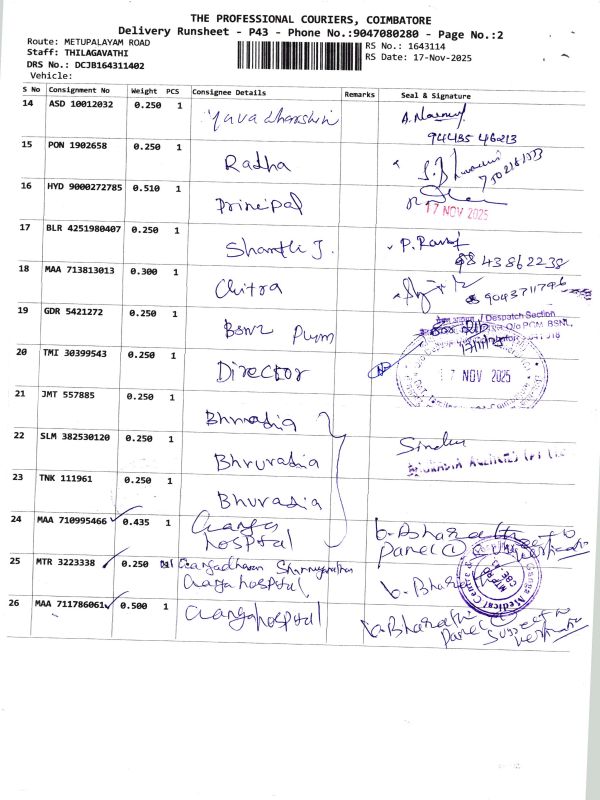 THE PROFESSIONAL COURIERS, COIMBATORE
Delivery Runsheet - P43 - Phone No.:9047080280 - Page No.:2
Route: METUPALAYAM ROAD
RS No.: 1643114
Staff: THILAGAVATHI
RS Date: 17-Nov-2025
DRS No.: DCJB164311402
Vehicle:
S No Consignment No Weight PCS Consignee Details Remarks Seal & Signature
14 ASD 10012032 0.250 1
94435 46213
15 PON 1902658 0.250 1 Radha
16 HYD 9000272785 0.510 1 Principal
17 NOV 2025
17 BLR 4251980407 0.250 1 Shanthi J.
9843862238
18 MAA 713813013 0.300 1 Chitra
9043711796
19 GDR 5421272 0.250 1 BSNL
Despatch Section
O/o PGM. BSNL,
20 TMI 30399543 0.250 1 Director
17 NOV 2025
21 JMT 557885 0.250 1
22 SLM 382530120 0.250 1 Bhuradia
Sindhu
23 TNK 111961 0.250 1 Bhuradia
24 MAA 710995466 0.435 1 Ganga hospital
b. Bharath
Panel
25 MTR 3223338 0.250 Gangadharan
Ganga hospital
b. Bharath
Ganga Medical Centre
26 MAA 711786061 0.500 1 Ganga hospital
b. Bharath
Panel
Subject to
verification